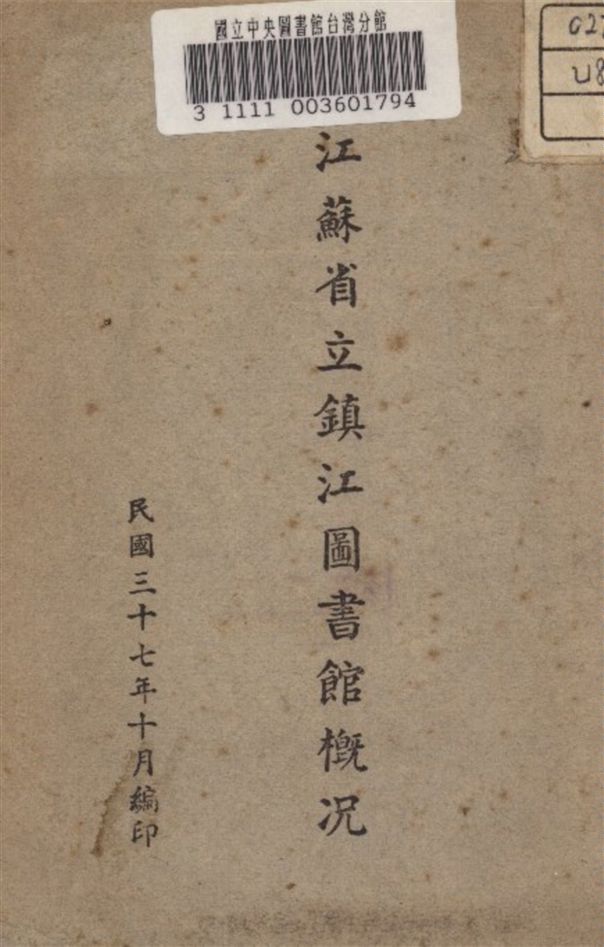 國立中央圖書館台灣分館
3 1111 003601794
江蘇省立鎮江圖書館概况
民國三十七年十月編印